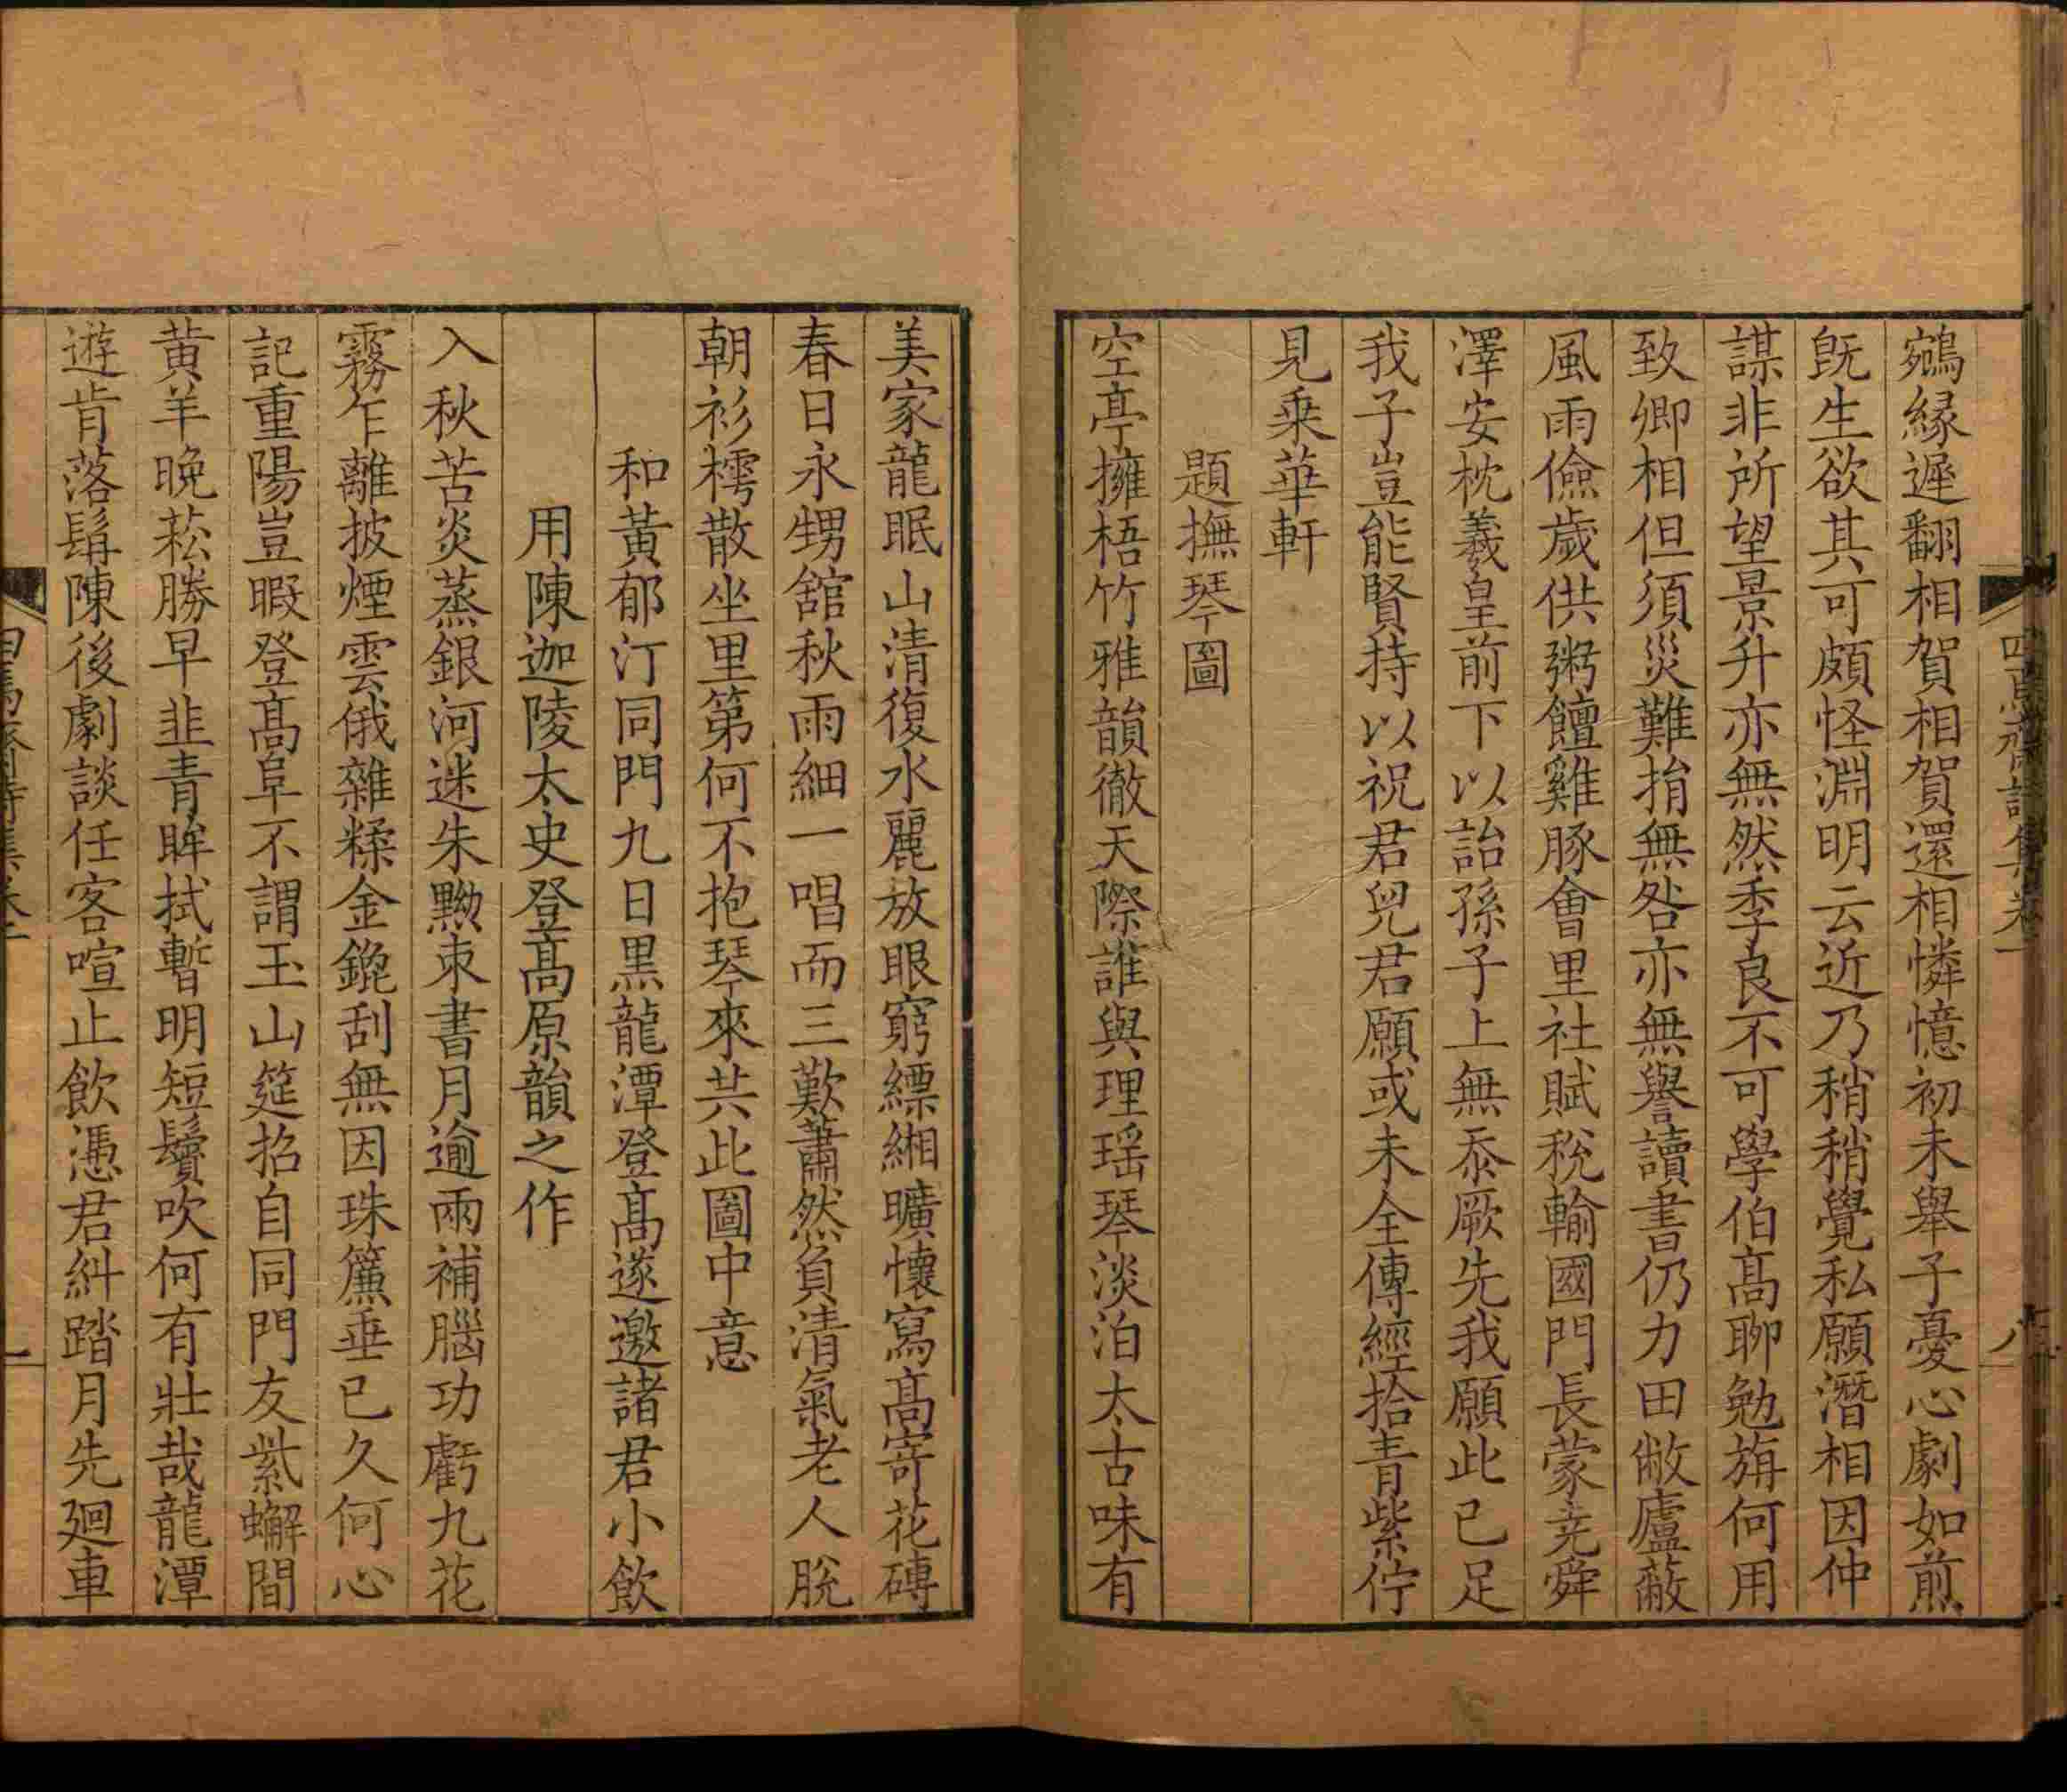 四焉齋詩集卷一
鵷緣遲翻相賀相賀還相憐憶初未舉子憂心劇如煎
旣生欲其可頗怪淵明云近乃稍稍覺私願潛相因仲
謀非所望景升亦無然季良不可學伯高聊勉旃何用
致卿相但須災難捐無咎亦無譽讀書仍力田敝廬蔽
風雨儉歲供粥饘雞豚會里社賦稅輸國門長蒙堯舜
澤安枕羲皇前下以詒孫子上無忝厥先我願此已足
我子豈能賢持以祝君兒君願或未全傳經拾青紫佇
見乘華軒
題撫琴圖
空亭擁梧竹雅韻徹天際誰與理瑶琴淡泊太古味有
美家龍眠山清復水麗放眼窮縹緗曠懷寫高寄花磚
春日永甥舘秋雨細一唱而三歎蕭然負清氣老人脫
朝衫樗散坐里第何不抱琴來共此圖中意
和黃郁汀同門九日黑龍潭登高遂邀諸君小飲
用陳迦陵太史登高原韻之作
入秋苦炎蒸銀河迷朱黝束書月逾兩補腦功虧九花
霧乍離披煙雲俄雜糅金鎞刮無因珠簾垂已久何心
記重陽豈暇登高阜不謂玉山筵招自同門友紫蠏間
黄羊晚菘勝早韭青眸拭暫明短鬢吹何有壯哉龍潭
遊肯落髯陳後劇談任客喧止飲憑君糾踏月先廻車